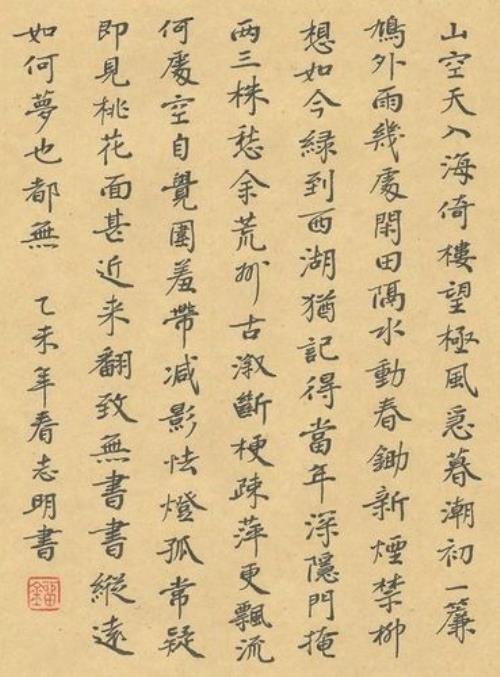 山空天入海倚樓望極風急暮潮初一簾
鳩外雨幾處閑田隔水動春鋤新煙禁柳
想如今緑到西湖猶記得當年深隱門掩
两三株愁余荒州古漵斷梗疎萍更飄流
何處空自覺圍羞帶减影怯燈孤常疑
即見桃花面甚近来翻致無書書縱遠
如何夢也都無 乙未年春志明書